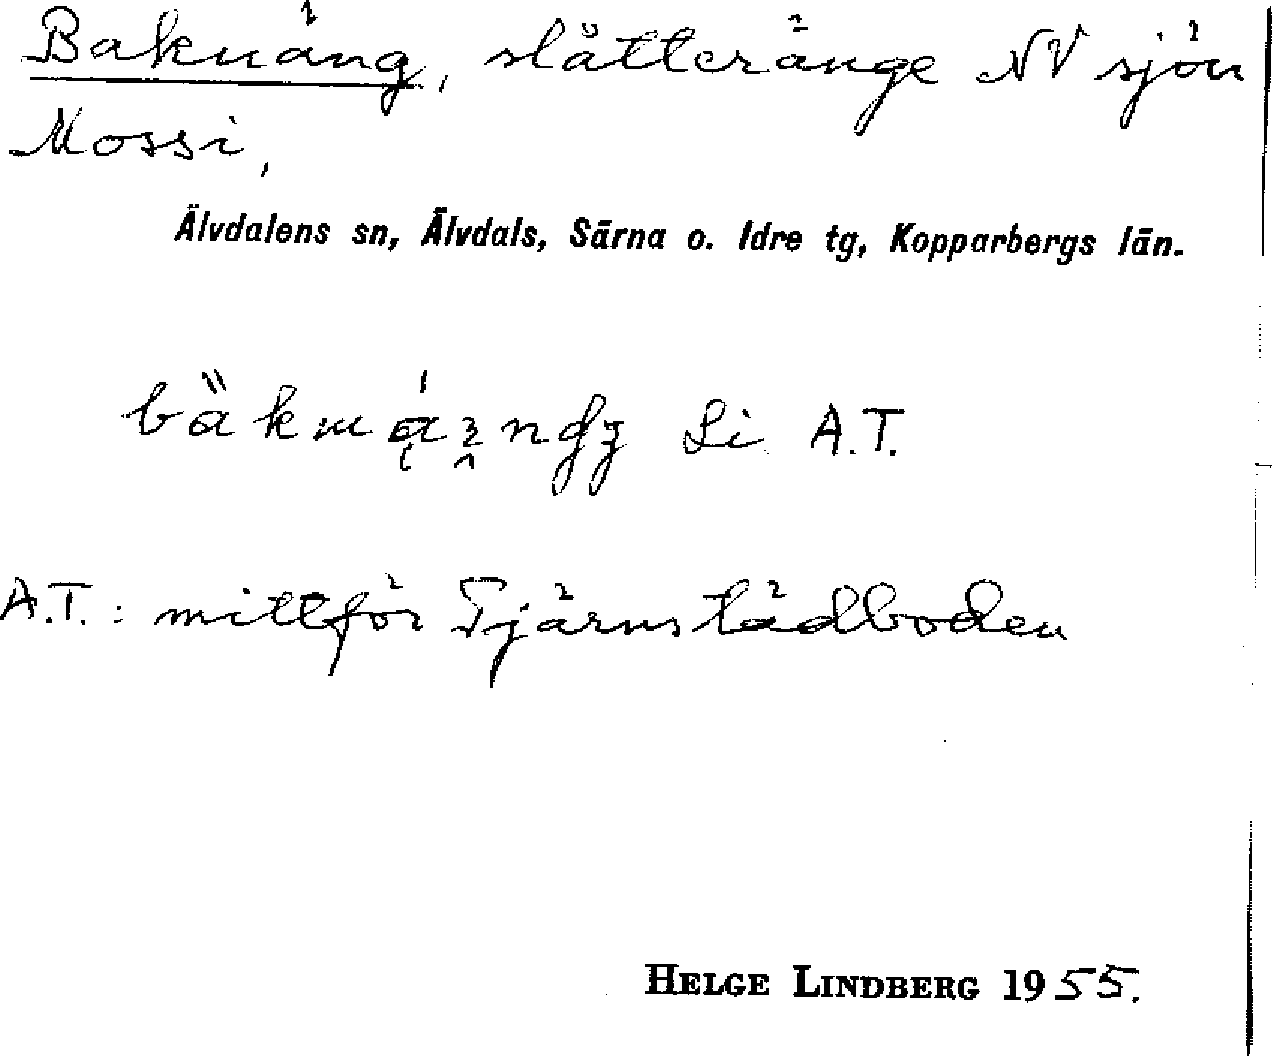 Bakuäng, slätteränge NV sjön
Mossi,
Älvdalens sn, Älvdals, Särna o. Idre tg, Kopparbergs län.
Li A.T.
A.T.: mittför Tjärnstädboden
HELGE LINDBERG 1955.